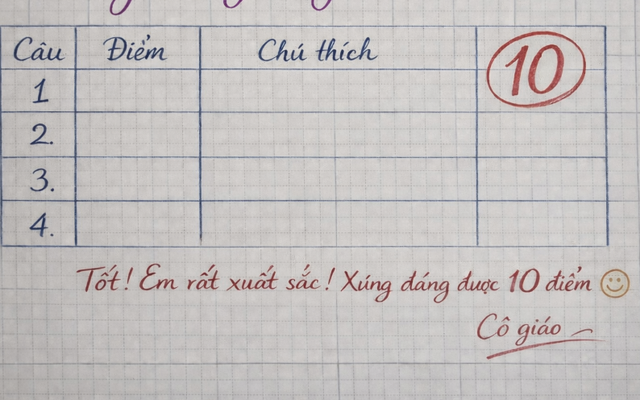 Câu Điểm Chú thích 10
1
2.
3.
4.
Tốt! Em rất xuất sắc! Xúng đáng được 10 điểm
Cô giáo